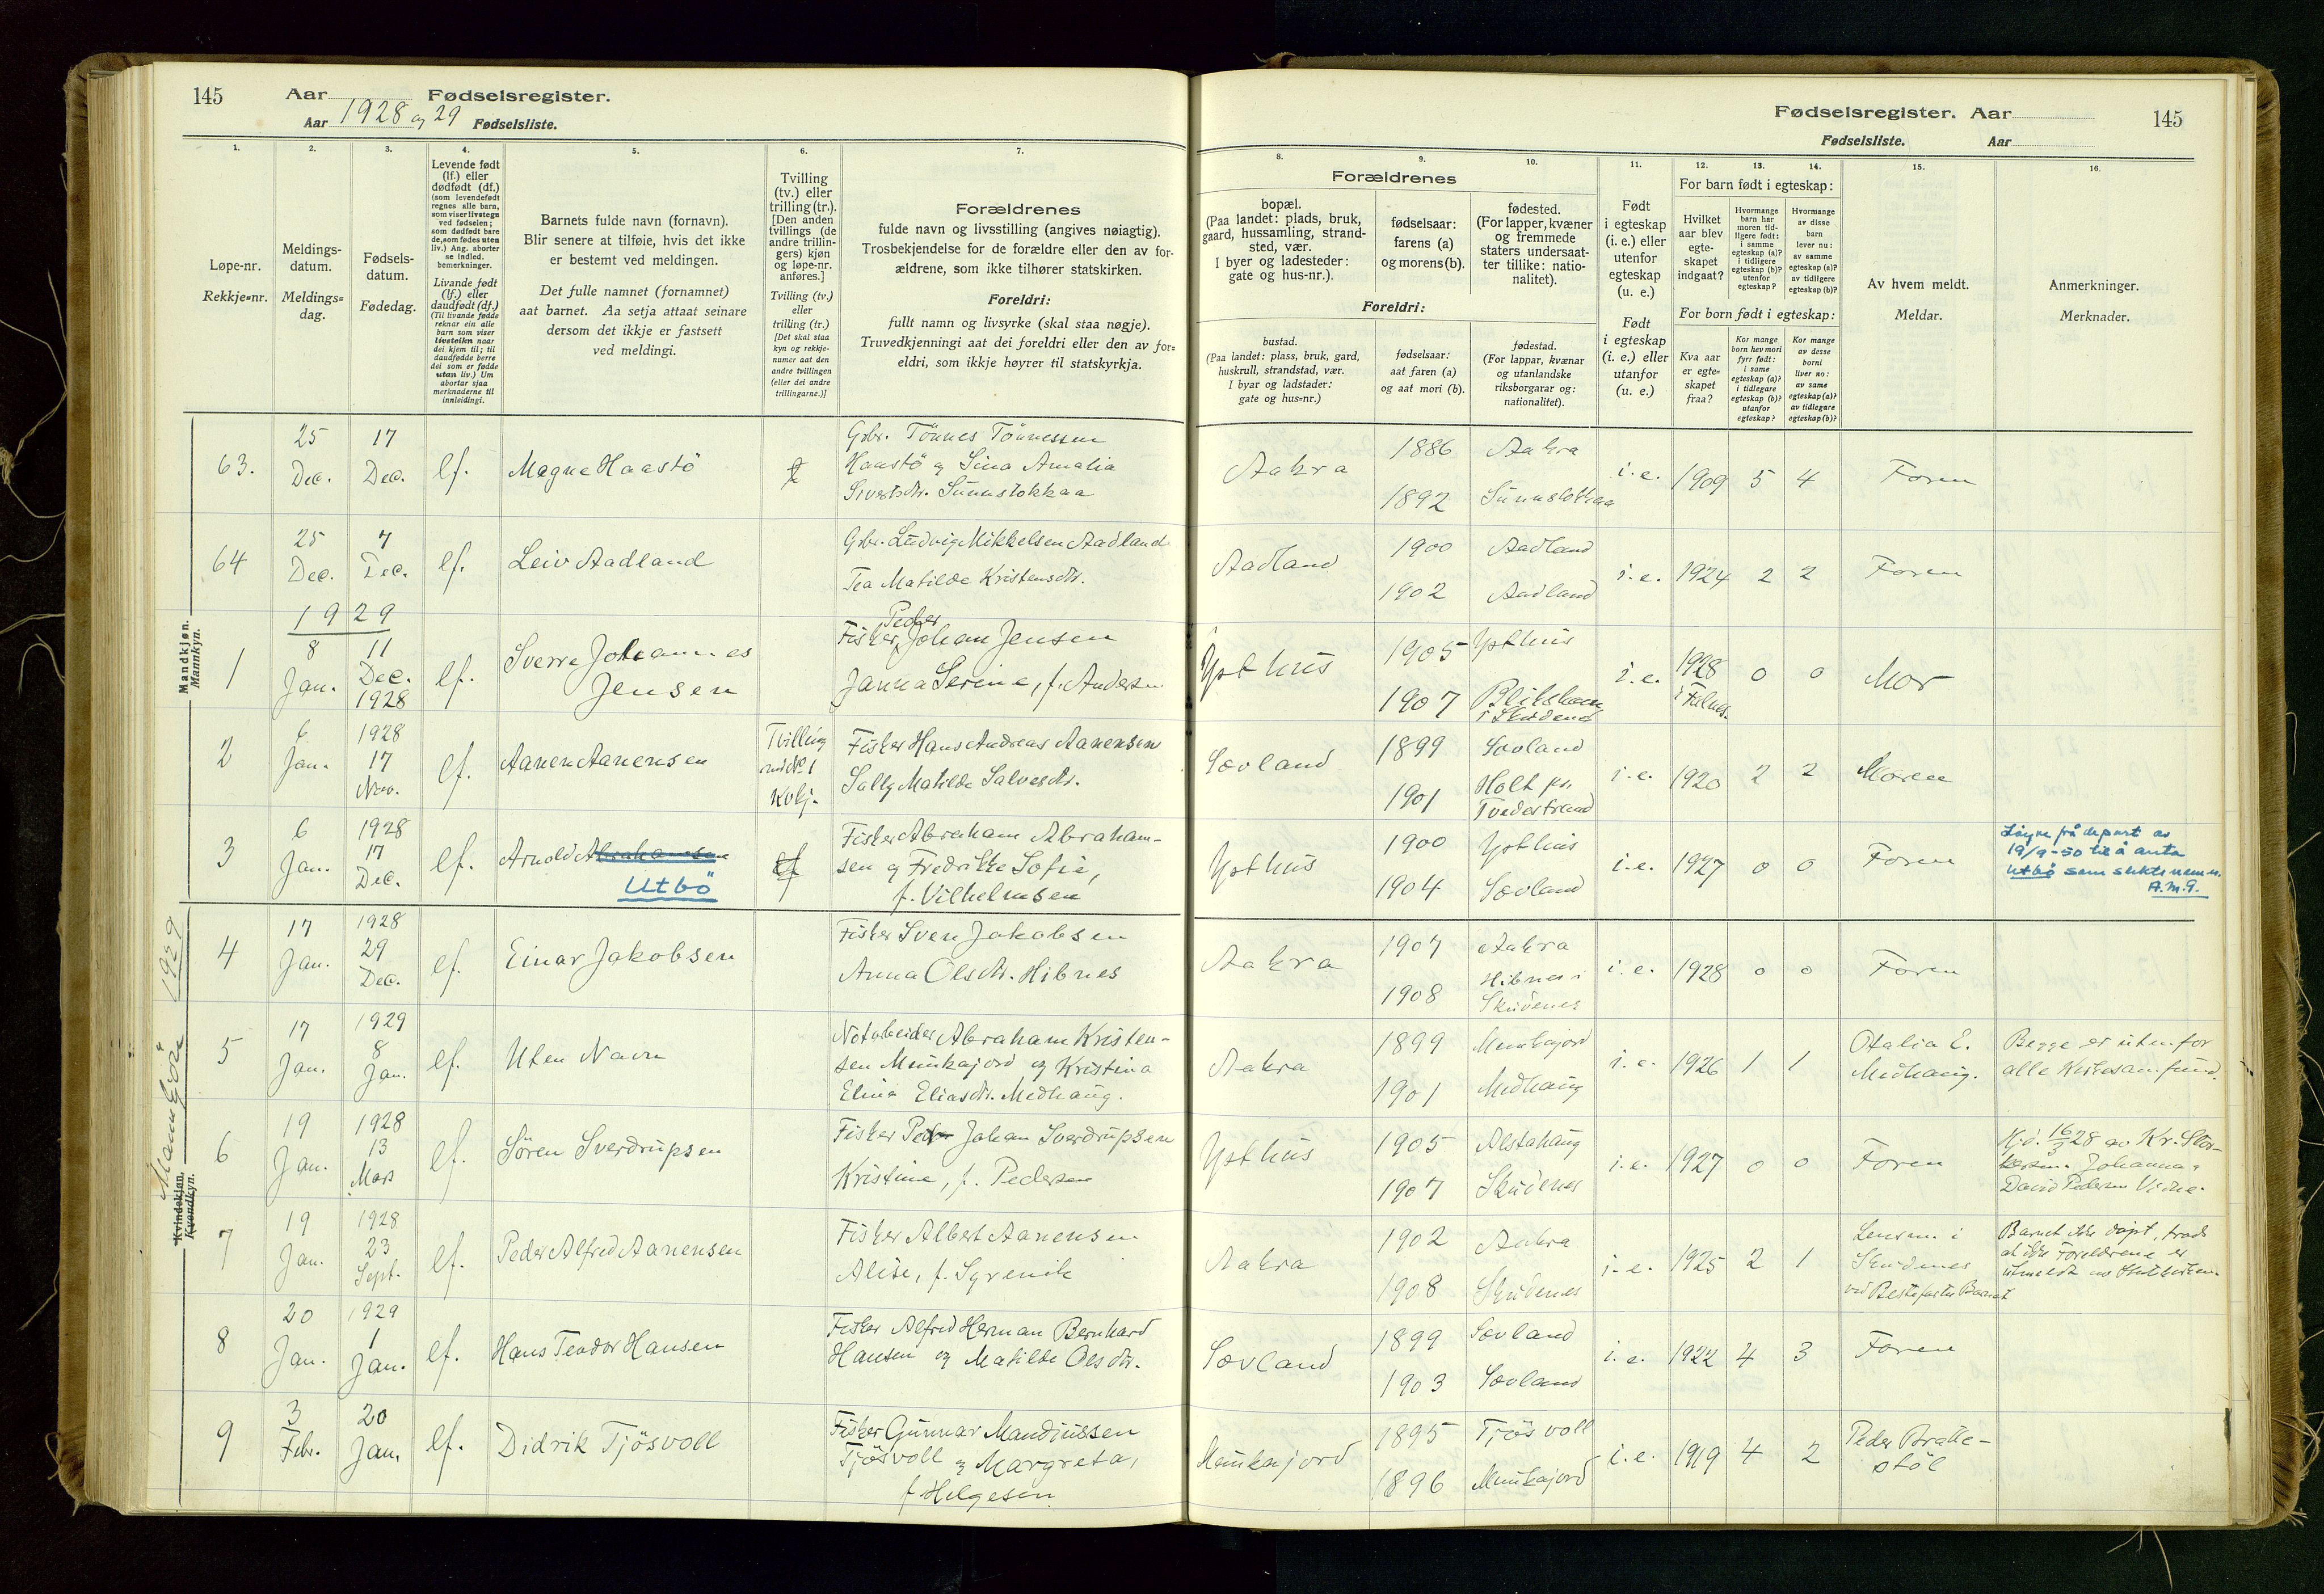 145
Aar 1928 og 29 Fødselsregister.
Aar Fødselsliste.
1.
2.
3.
4.
5.
6.
7.
Løpe-nr.
Rekkje=nr.
Meldings-
datum.
Meldings=
dag.
Fødsels-
datum.
Fødedag.
Levende født
(lf.) eller
dødfødt (df.)
(som levendefødt
regnes alle barn,
som viser livstegn
ved fødselen;
som dødfødt bare
de, som fødes uten
liv.) Ang. aborter
se indled.
bemerkninger.
Livande født
(lf.) eller
daudfødt (df.)
(Til livande fødde
reknar ein alle
barn som viser
livsteikn naar
dei kjem til; til
daudfødde berre
dei som er fødde
utan liv.) Um
abortar sjaa
merknaderne til
innleidingi.
Barnets fulde navn (fornavn).
Blir senere at tilføie, hvis det ikke
er bestemt ved meldingen.
Det fulle namnet (fornamnet)
aat barnet. Aa setja attaat seinare
dersom det ikkje er fastsett
ved meldingi.
Tvilling
(tv.) eller
trilling (tr.).
[Den anden
tvillings (de
andre trillin-
gers) kjøn
og løpe-nr.
anføres.]
Tvilling (tv.)
eller
trilling (tr.)
[Det skal staa
kyn og rekkje-
numer aat den
andre tvillingen
(eller dei andre
trillingarne.)]
Forældrenes
fulde navn og livsstilling (angives nøiagtig).
Trosbekjendelse for de forældre eller den av for-
ældrene, som ikke tilhører statskirken.
Foreldri:
fullt namn og livsyrke (skal staa nøgje).
Truvedkjenningi aat dei foreldri eller den av for=
eldri, som ikkje høyrer til statskyrkja.
Mandkjøn.
Mannkyn.
63.
25
Dec.
17
Dec.
lf.
Magne Haastö
Gbr. Tönnes Tönnessen
Haastö og Sina Amalia
Sivertsdtr. Sunnstokkaa
64
25
Dec.
7
Dec.
lf.
Leiv Aadland
Gbr. Ludvig Mikkelsen Aadland
Tea Matilde Kristensdtr.
1929
1
8
Jan.
11
Dec.
1928
lf.
Sverre Johannes
Jensen
Peder
Fisker Johan Jensen
Janna Serine, f. Andersen
2
6
Jan.
1928
17
Nov.
lf.
Aanen Aanensen
Tvilling
med No 1
Kvkj.
Fisker Hans Andreas Aanensen
Sally Matilde Salvesdtr.
3
6
Jan.
1928
17
Dec.
lf.
Arnold Abrahamsen
Utbö
Fisker Abraham Abraham-
sen og Fredrikke Sofie,
f. Vilhelmsen
Manns Kjön 1929
Kvindekjøn.
Kvendkyn.
4
17
Jan.
1928
29
Dec.
lf.
Einar Jakobsen
Fisker Sven Jakobsen
Anna Olsdtr. Hibnes
5
17
Jan.
1929
8
Jan.
lf.
Uten Navn
Notarbeider Abraham Kristen-
sen Munkajord og Kristina
Elina Eliasdtr. Medhaug.
6
19
Jan.
1928
13
Mars
lf.
Sören Sverdrupsen
Fisker Peder Johan Sverdrupsen
Kristine, f. Pedersen
7
19
Jan.
1928
23
Sept.
lf.
Peder Alfred Aanensen
Fisker Albert Aanensen
Alise, f. Syrenik
8
20
Jan.
1929
1
Jan.
lf.
Hans Teodor Hansen
Fisker Alfred Herman Bernhard
Hansen og Matilde Olsdtr.
9
3
Febr.
20
Jan.
lf.
Didrik Tjösvoll
Fisker Gunnar Mandiussen
Tjösvoll og Margreta,
f Helgesen
Fødselsregister. Aar
145
Fødselsliste. Aar
8.
9.
10.
11.
12.
13.
14.
15.
16.
Forældrenes
bopæl.
(Paa landet: plads, bruk,
gaard, hussamling, strand-
sted, vær.
I byer og ladesteder:
gate og hus-nr.).
fødselsaar:
farens (a)
og morens (b).
fødested.
(For lapper, kvæner
og fremmede
staters undersaat-
ter tillike: natio-
nalitet).
Foreldri:
bustad.
(Paa landet: plass, bruk, gard,
huskrull, strandstad, vær.
I byar og ladstader:
gate og hus=nr.)
fødselsaar:
aat faren (a)
og aat mori (b).
fødestad.
(For lappar, kvænar
og utanlandske
riksborgarar og:
nationalitet).
Født
i egteskap
(i. e.) eller
utenfor
egteskap
(u. e.)
Født
i egteskap
(i. e.) eller
utanfor
(u. e.)
For barn født i egteskap:
Hvilket
aar blev
egte-
skapet
indgaat?
Hvormange
barn har
moren tid-
ligere født:
i samme
egteskap (a)?
i tidligere
egteskap (b)?
utenfor
egteskap?
Hvormange
av disse
barn
lever nu:
av samme
egteskap (a)?
av tidligere
egteskap (b)?
For born født i egteskap:
Kva aar
er egte=
skapet
fraa?
Kor mange
born hev mori
fyrr født:
i same
egteskap (a)?
i tidlegare
egteskap (b)?
utanfor
egteskap?
Kor mange
av desse
borni
liver no:
av same
egteskap (a)?
av tidlegare
egteskap (b)?
Av hvem meldt.
Meldar.
Anmerkninger.
Merknader.
Aakra
1886
1892
Aakra
Sunnstokkaa
i. e.
1909
5
4
Faren
Aadland
1900
1902
Aadland
Aadland
i. e.
1924
2
2
Faren
Ysthus
1905
1907
Ysthus
i Skudenes
i. e.
1928
i Falnes.
0
0
Mor
Sævland
1899
1901
Sævland
Holt pr.
Tvedestrand
i. e.
1920
2
2
Moren
Ysthus
1900
1904
Ysthus
Sævland
i. e.
1927
0
0
Faren
Löyve frå depart av
19/9-50 til å anta
Utbö som slektsnamn.
A.M.G.
Aakra
1907
1908
Aakra
Hibnes i
Skudenes
i. e.
1928
0
0
Faren
Aakra
1899
1901
Munkajord
Medhaug
i. e.
1926
1
1
Otalia E.
Medhaug.
Begge er utenfor
alle Kirkesamfund.
Ysthus
1905
1907
Alstahaug
Skudenes
i. e.
1927
0
0
Faren
Hjd. 16/3 28 av Kr. Stor-
Johanna,
David Pedersen Vedna.
Aakra
1902
1908
Aakra
Skudenes
i. e.
1925
2
1
Lensm. i
Skudenes
ved Bestefar til Barnet
Barnet ikke döpt, trods
at ikke Foreldrene er
utmeldt av Statskirken.
Sævland
1899
1903
Sævland
Sævland
i. e.
1922
4
3
Faren
Munkajord
1895
1896
Tjösvoll
Munkajord
i. e.
1919
4
2
Peder Bratte-
stöl